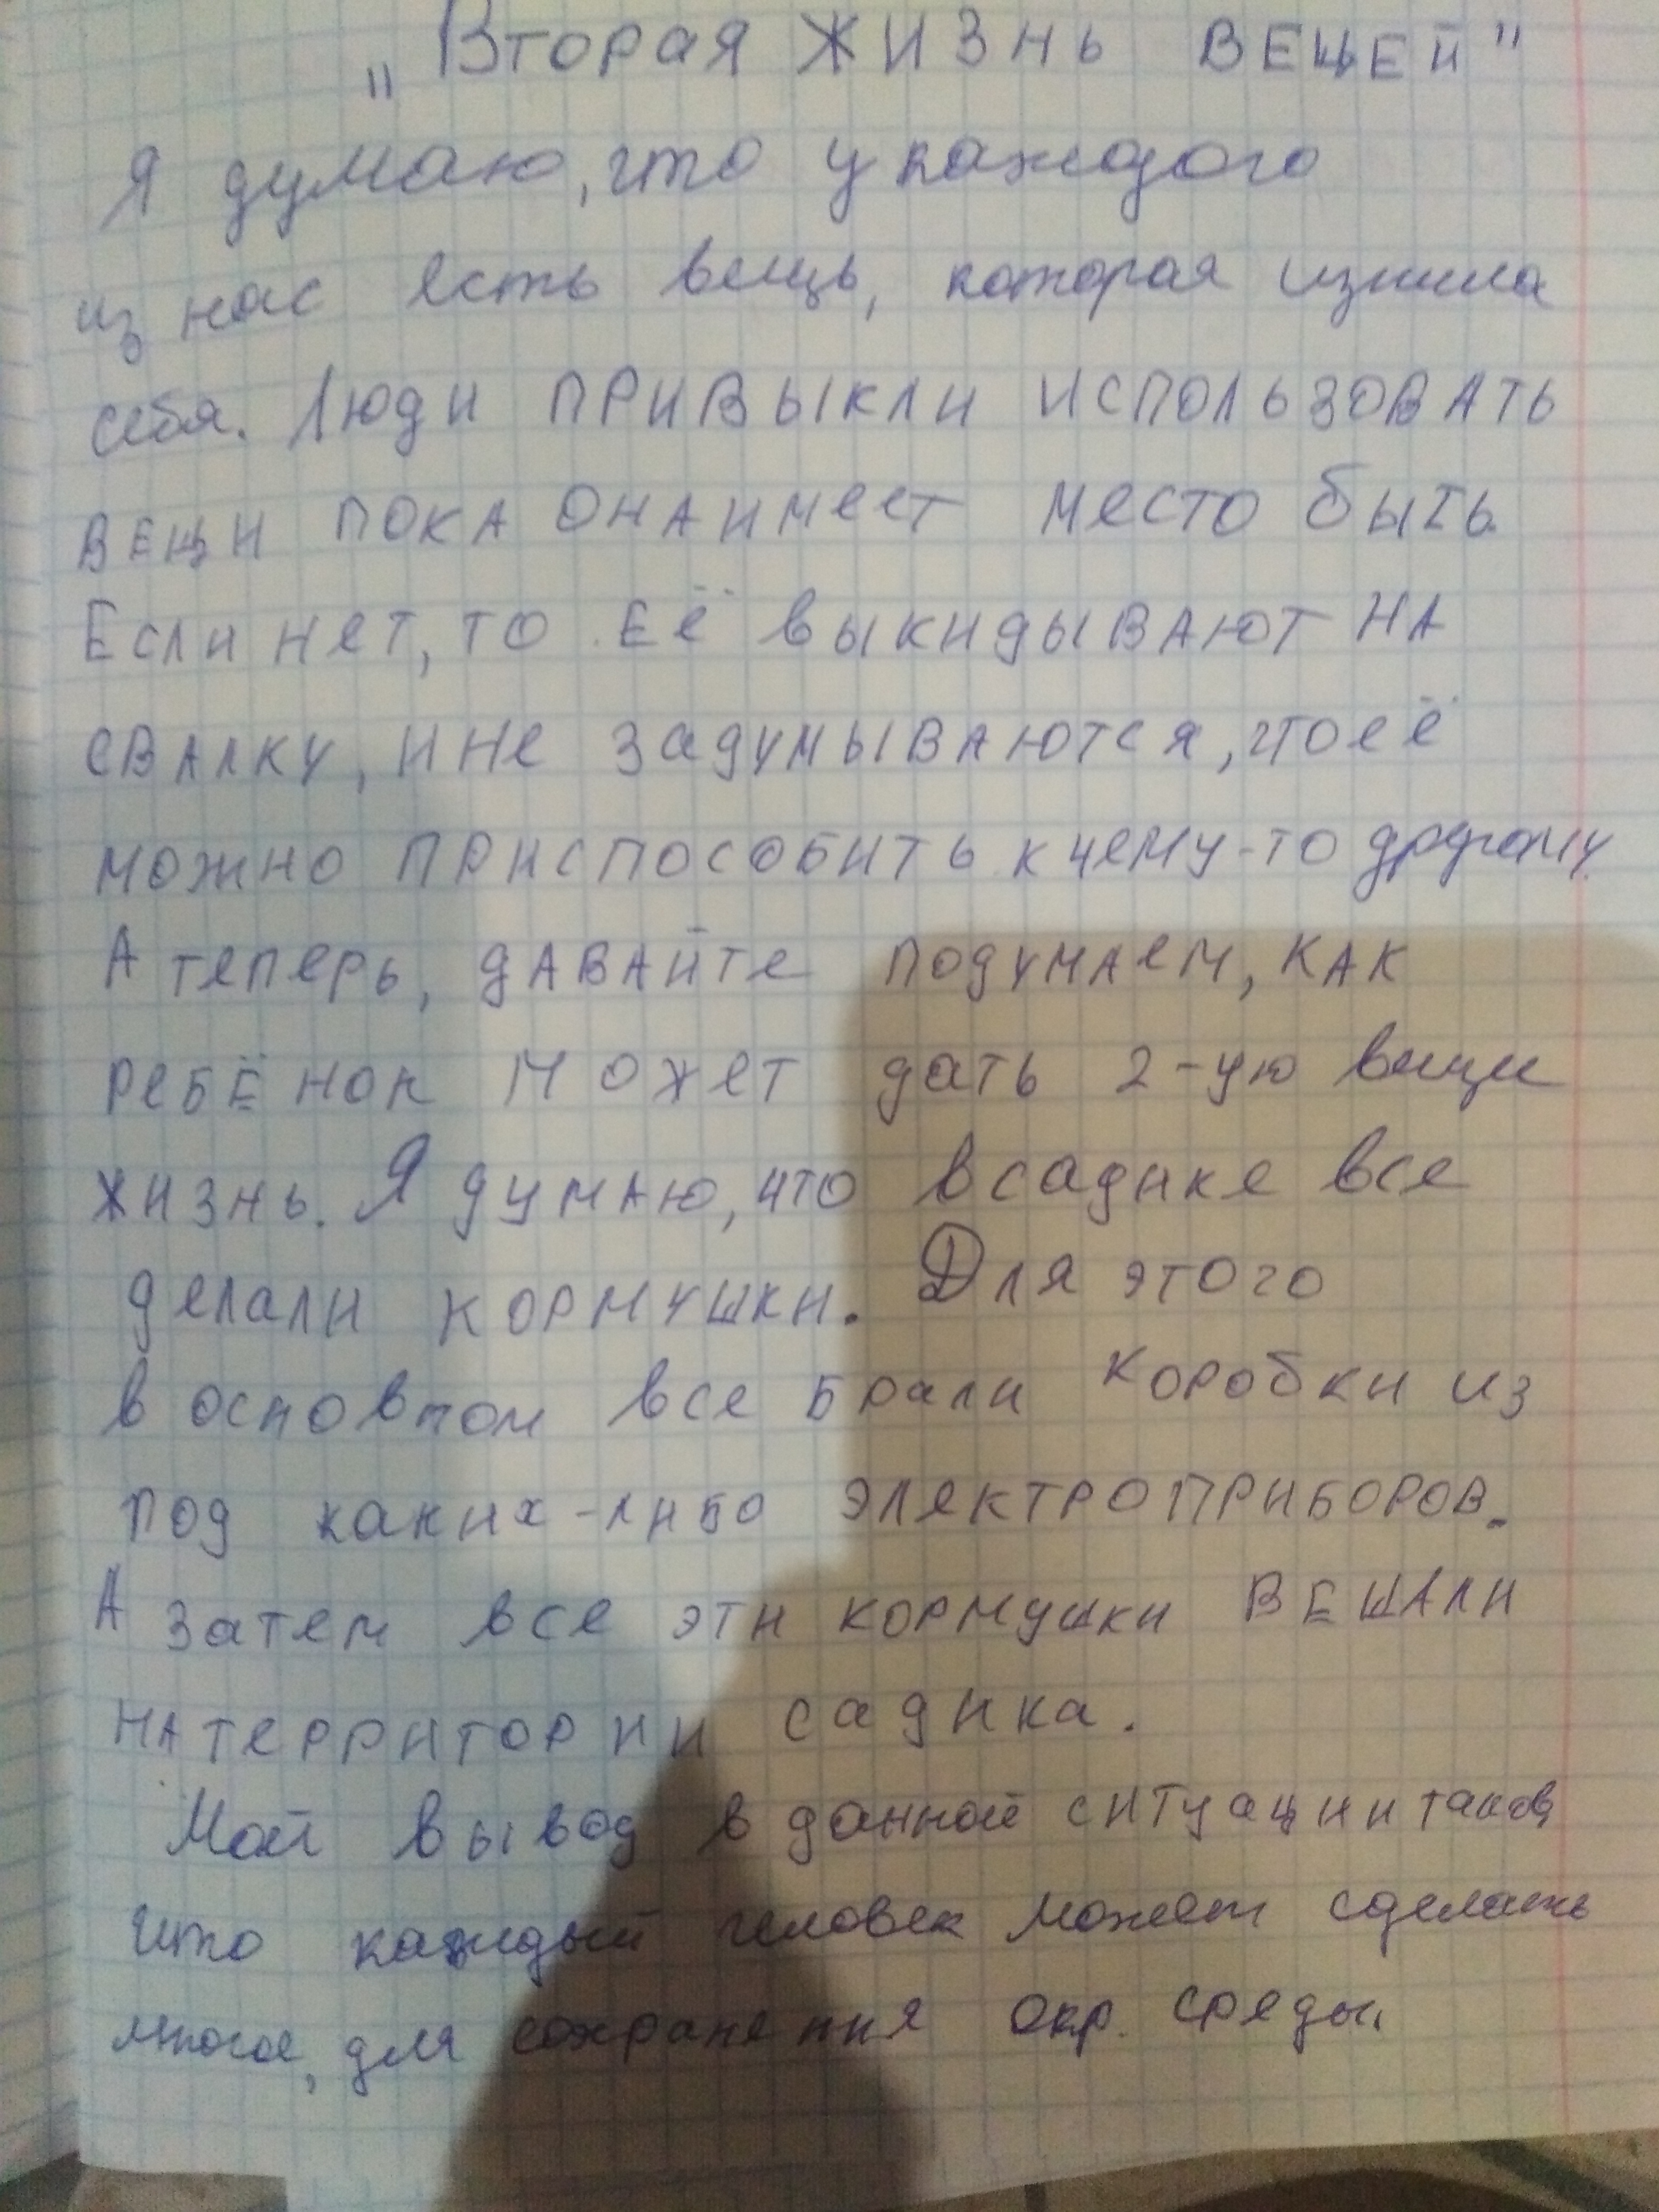 "Вторая жизнь вещей"
Я думаю, что у каждого
из нас есть вещь, которая изжила
себя. Люди привыкли использовать
вещи пока она имеет место быть.
Если нет, то её выкидывают на
свалку, и не задумываются, что её
можно приспособить к чему-то другому.
А теперь, давайте подумаем, как
ребёнок может дать 2-ую вещи
жизнь. Я думаю, что в садике все
делали кормушки. Для этого
в основном все брали коробки из
под каких-либо электроприборов.
А затем все эти кормушки вешали
на территории садика.
Мой вывод в данной ситуации таков,
что каждый человек может сделать
многое, для сохранения окр. среды.